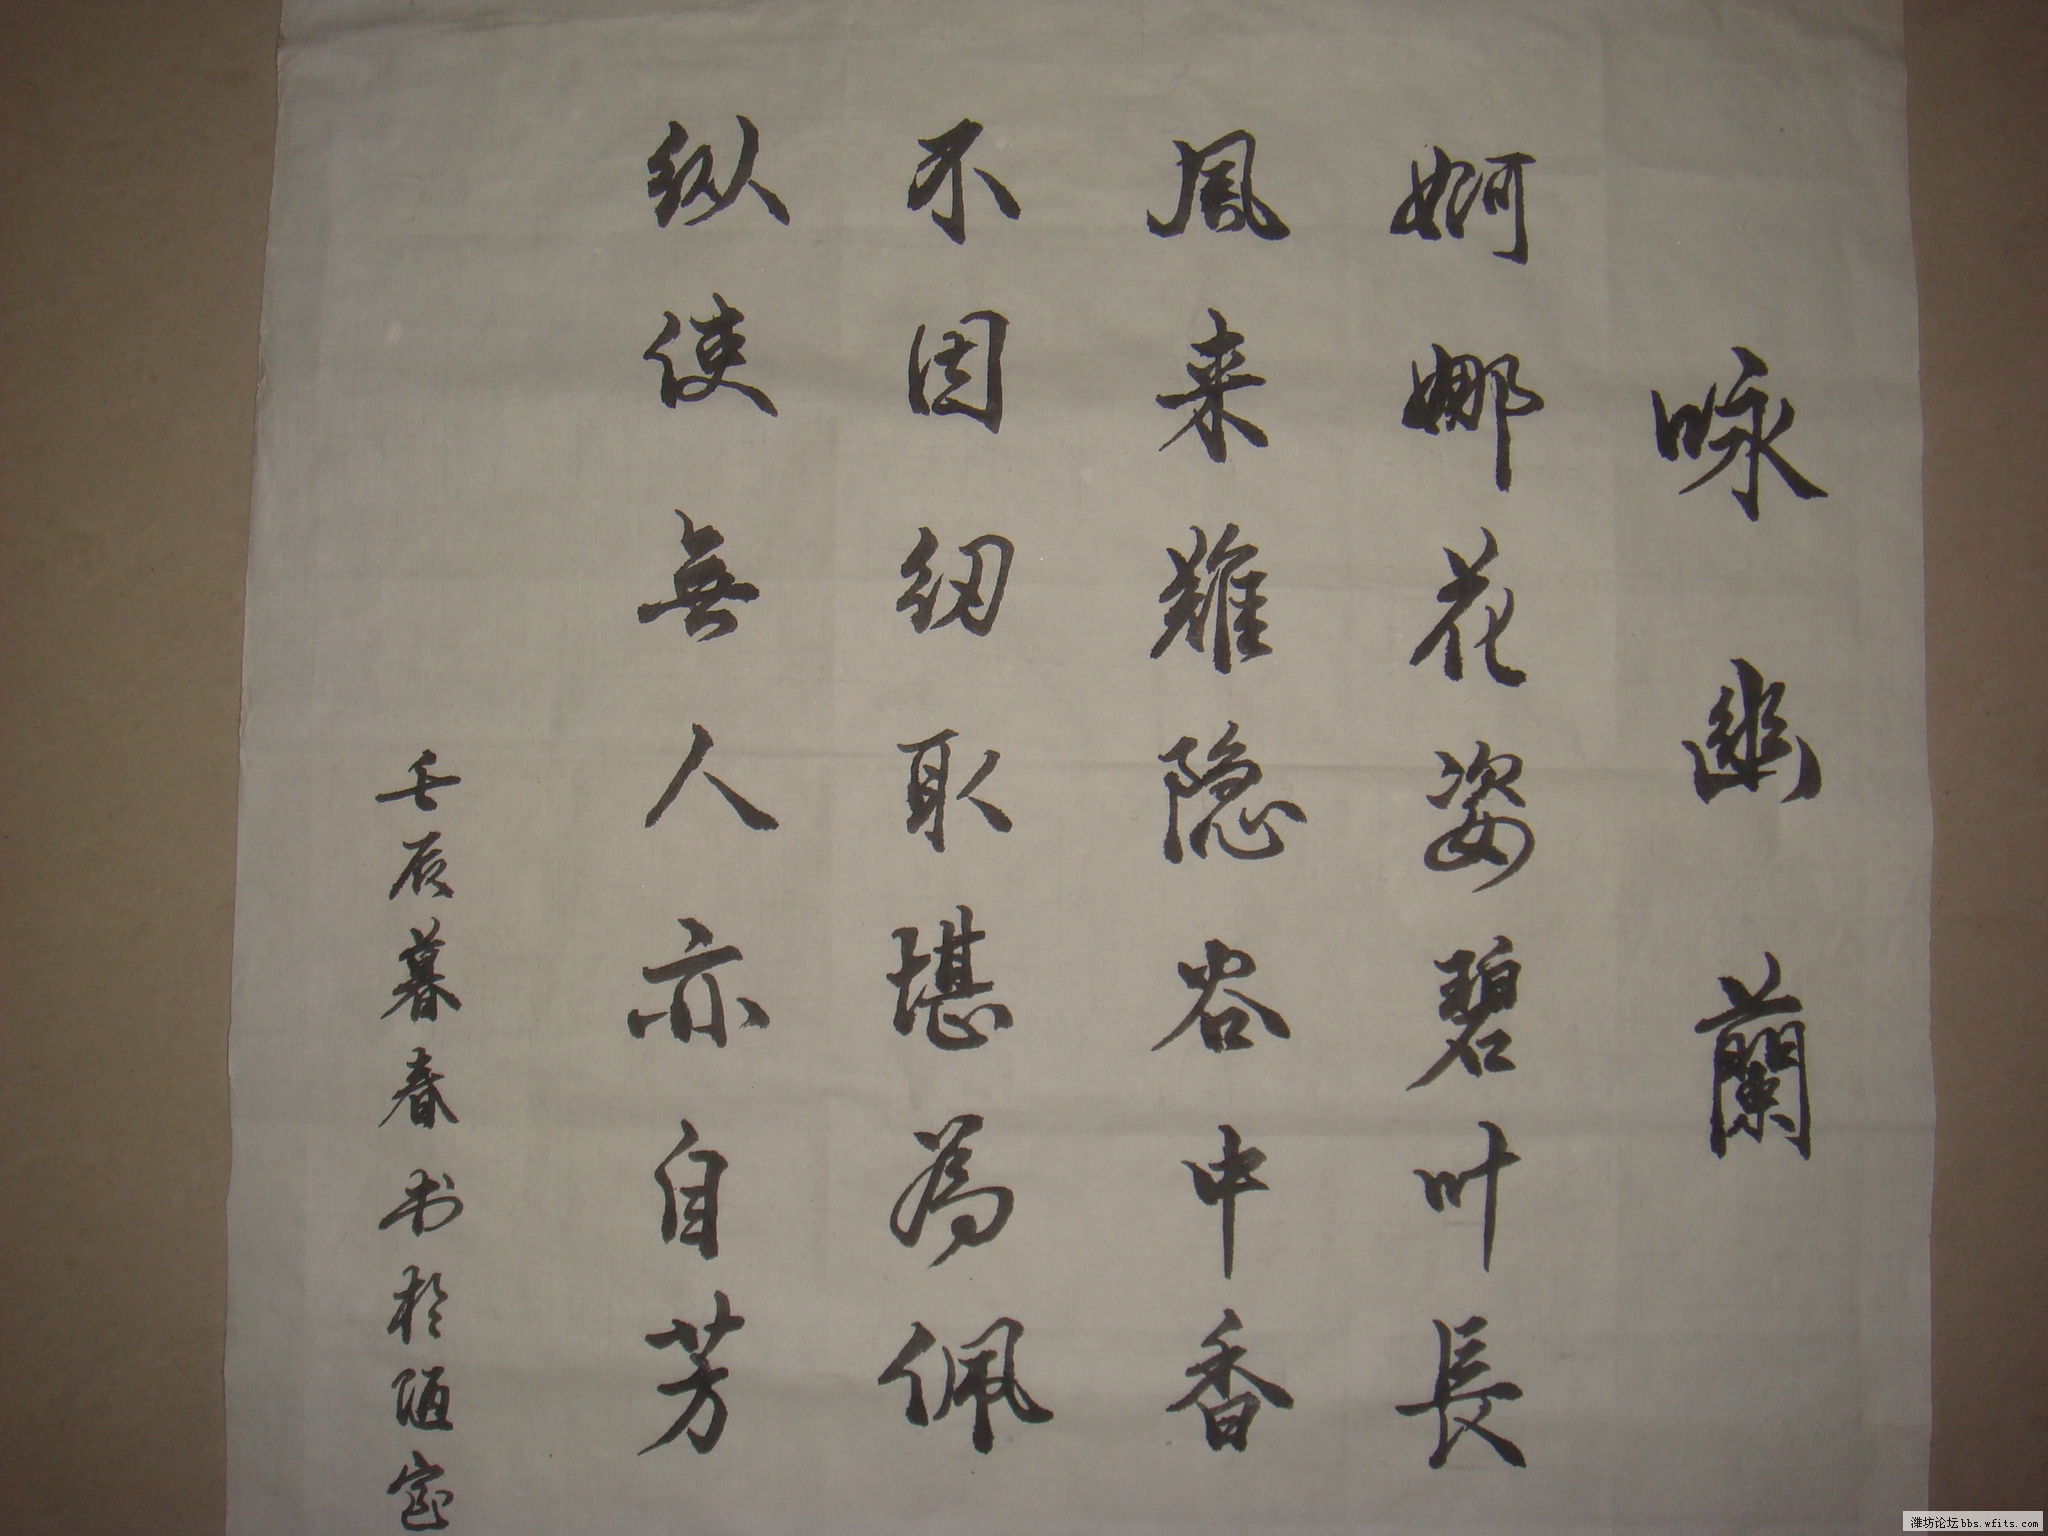 咏幽蘭
婀娜花姿碧叶長
風来難隐谷中香
不因纫取堪為佩
纵使無人亦自芳
壬辰暮春书於陋室
潍坊论坛bbs.wfits.com